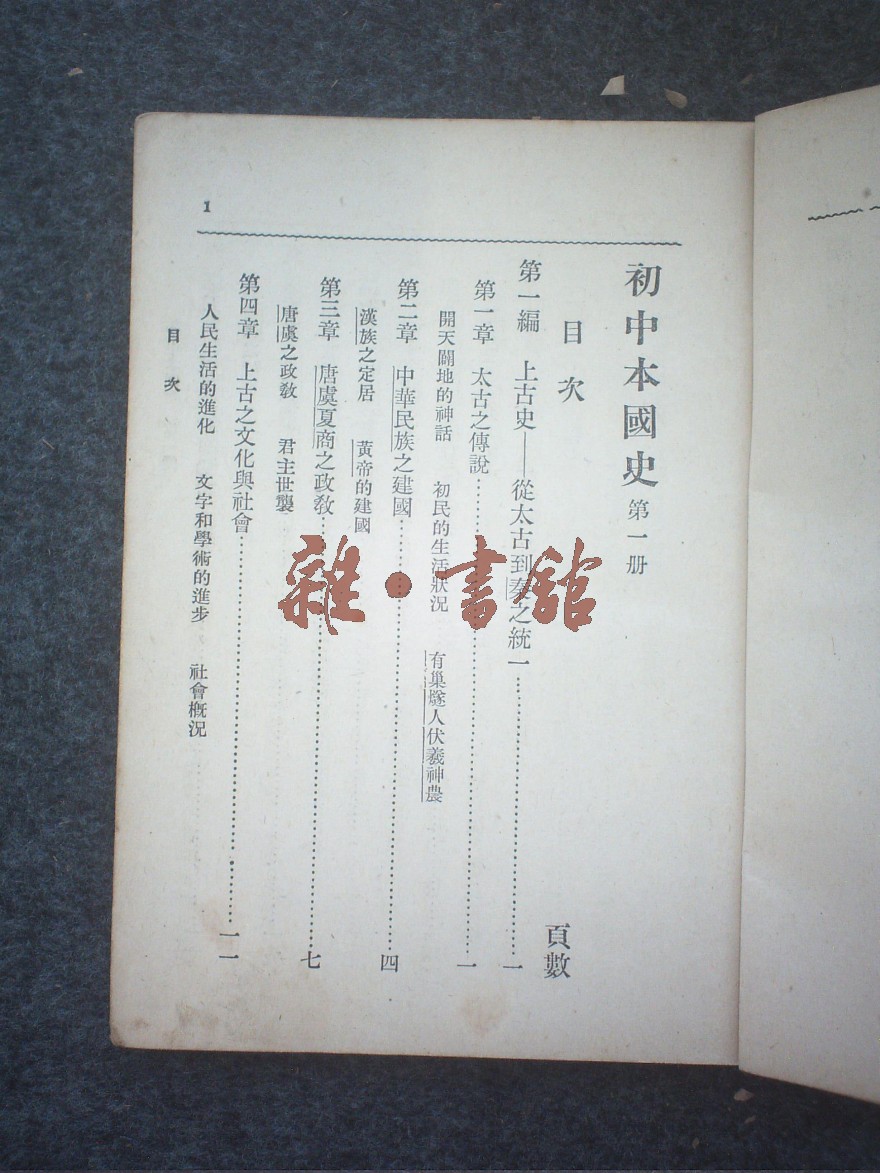 初中本國史 第一册
目次
頁數
第一編 上古史——從太古到秦之統一……一
第一章 太古之傳說……一
開天闢地的神話 初民的生活狀況 有巢燧人伏羲神農
第二章 中華民族之建國……四
漢族之定居 黃帝的建國
第三章 唐虞夏商之政教……七
唐虞之政教 君主世襲
第四章 上古之文化與社會……一一
人民生活的進化 文字和學術的進步 社會概況
目次
1
雜·書館